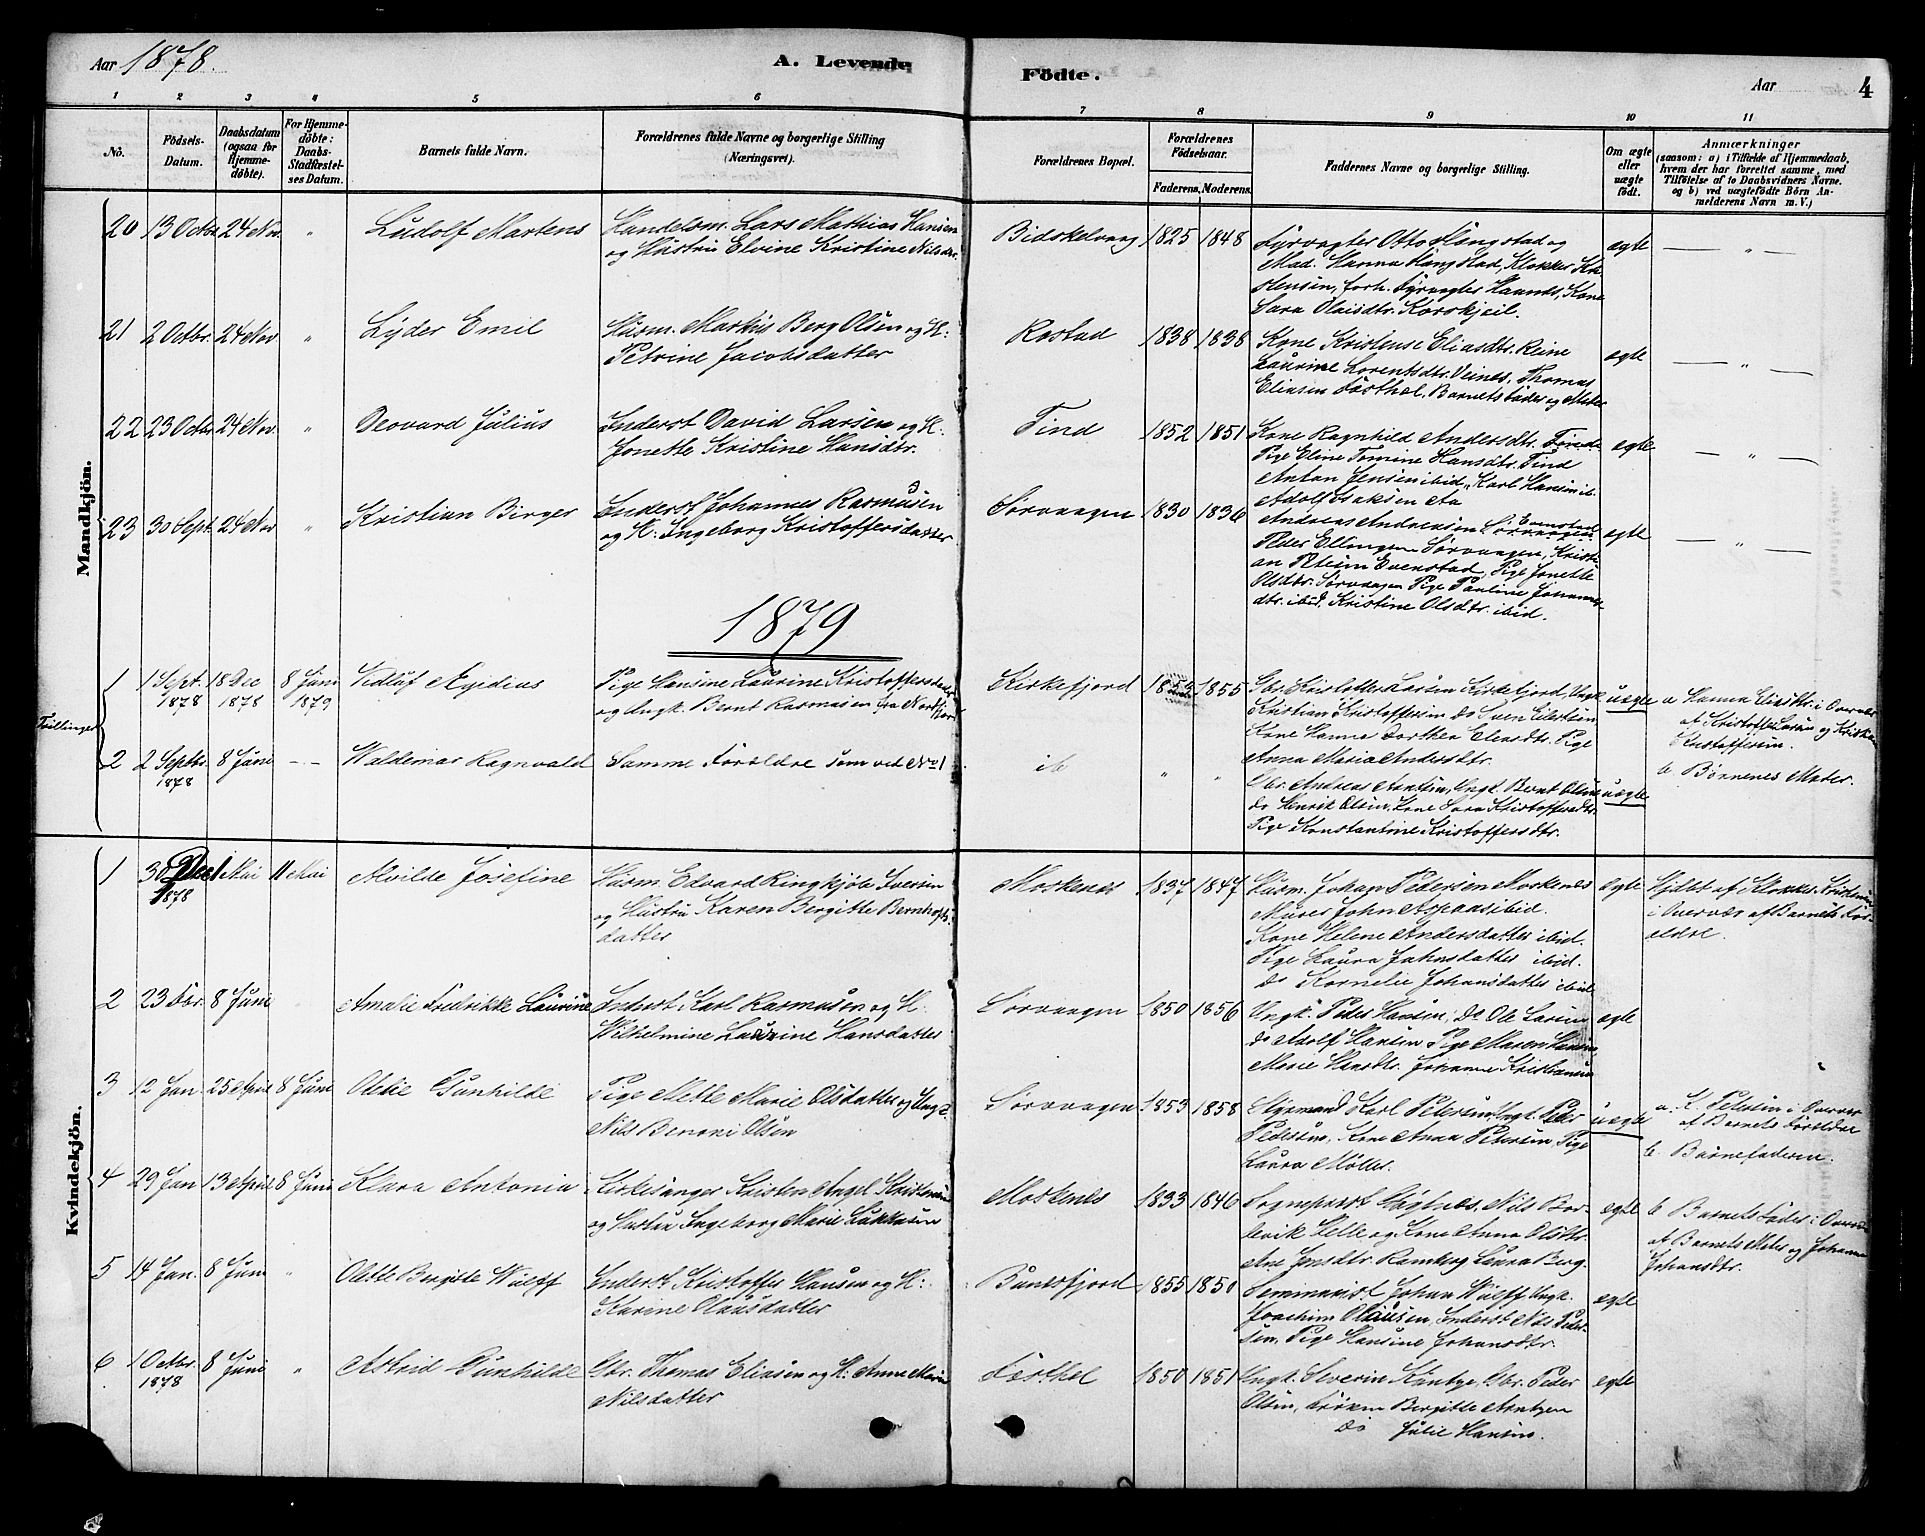 Aar 1878.
A. Levende
Födte.
Aar
4
1 2 3 4 5 6 7 8 9 10 11
No.
Födsels-
Datum.
Daabsdatum
(ogsaa for
Hjemme-
döbte).
For Hjemme-
döbte:
Daabs-
Stadfæstel-
ses Datum.
Barnets fulde Navn.
Forældrenes fulde Navne og borgerlige Stilling
(Næringsvei).
Forældrenes Bopæl.
Forældrenes
Födselsaar.
Faderens. Moderens.
Faddernes Navne og borgerlige Stilling.
Om ægte
eller
uægte
födt.
Anmærkninger
(saasom: a) i Tilfælde af Hjemmedaab,
hvem der har forrettet samme, med
Tilföielse af to Daabsvidners Navne,
og b) ved uægtefödte Börn An-
melderens Navn m. V.)
Mandkjön.
20 13 Octbr. 24 Nov. " Ludolf Martens
Handelsm. Lars Mathias Hansen
og Hustru Elvine Kristine Nilsdtr.
Bidskelvaag 1825 1848
Fyrvogter Otto Hangstad og
Mad. Hanna Hangstad, Klokker Kri-
stensen, forh. Fyrvogter Haunds, Kone
Sara Olaisdtr. Korskjeil.
ægte — " —
21 2 Octbr. 24 Nov " Lyder Emil
Husm. Markus Berg Olsen og H:
Petrine Jacobsdatter
Rostad 1838 1838
Kone Kristense Eliasdtr. Reine
Laurine Lorentsdtr. Veines, Thomas
Eliasen Forsthel, Barnets Fader og Moder
ægte — " —
22 23 Octbr. 24 Nov. " Deovard Julius
Inderst David Larsen og H.
Jonette Kristine Hansdtr.
Tind 1852 1851
Kone Ragnhild Andersdtr. Tind
Pige Eline Tomine Hansdtr. Tind
Anton Jensen ibid, Karl Hansen ib.
Adolf Isaksen Aa
ægte — " —
23 30 Sept. 24 Nov " Kristian Birger
Inderst Johannes Rasmusen
og H: Ingeborg Kristoffersdatter
Sørvaagen 1830 1836
Andreas Andreasen Evenstad
Peder Ellingsen Sørvaagen, Kristi-
an Petersen Evenstad, Pige Jonette
Olsdtr. Sørvaagen Pige Pauline Johannes-
dtr. ibid, Kristine Olsdtr. ibid.
ægte — " —
1879
Tvillinger
1 1 Sept. 1878 18 Dec 1878 8 Juni 1879 Vidluf Ægidius
Pige Hansine Laurine Kristoffersdatter
og Ungk. Bernt Rasmusen fra Nordfjord
Kirkefjord 1855
Gbr. Kristoffer Larsen Kirkefjord, Ungk.
Kristian Kristoffersen do Sven Eilertsen
Kone Hanna Dorthea Eliasdtr. Pige
Anna Maria Andersdtr.
uægte
a Hanna Eliasdtr. i Overvær
af Kristoffer Larsen og Kristian
Kristoffersen.
b. Børnenes Moder.
2 2 Septbr. 1878 8 Juni - - Waldemar Ragnvald
Samme Forældre som ved No 1
ib " "
Gbr. Andreas Arntsen, Ungk. Bernt Olsen
do Henrik Olsen, Kone Sara Kristoffersdtr.
Pige Konstantine Kristoffersdtr.
uægte
Kvindekjön.
1 30 Dec 1878 1 Mai 11 Mai Alvilde Josefine
Husm. Edvard Ringkjøb Iversen
og Hustru Karen Bergitte Bernhofts-
datter
Moskenes 1837 1847
Husm. Johan Pedersen Moskenes
Murer John Aspaas ibid.
Kone Helene Andersdatter ibid.
Pige Laura Johnsdatter ibid.
do Kornelie Johansdatter ibid
ægte
Hjdbt af Klokker Kristensen
i Overvær af Barnets For-
ældre.
2 23 Febr. 8 Juni Amalie Fredrikke Laurine
Inderst Karl Rasmusen og H.
Wilhelmine Laurine Hansdatter
Sørvaagen 1850 1856
Ungk. Peder Hansen, do Ole Larsen
do Adolf Hansen Pige Maren Hansen
Marie Hansdtr. Johanne Kristiansen
ægte
3 12 Jan. 25 April 8 Juni Otelie Gunhilde
Pige Mette Marie Olsdatter og Ungk.
Nils Benoni Olsen
Sørvaagen 1853 1858
Styrmand Karl Petersen Ungk. Peder
Pedersen, Kone Anna Petersen, Pige
Laura Møller.
uægte
a. K. Petersen i Overvær
af Barnets Forældre
b. Barnefaderen.
4 29 Jan 13 April 8 Juni Klara Antonia
Kirkesanger Kristen Angel Kristensen
og Hustru Ingeborg Marie Lukkasen
Moskenes 1833 1846
Sognepræst Hagtnes, Nils Bor-
kevik Helle og Kone Anna Olsdtr.
Ane Jensdtr. Ramberg Laura Berg.
ægte
b. Barnets Fader i Overvær
af Barnets Moder og Johanna
Johansdtr.
5 14 Jan. 8 Juni " Olette Bergitte Wulff
Inderst Kristoffer Hansen og H:
Karine Olausdatter
Bunesfjord 1855 1850
Seminarist Johan Wulff Ungk.
Joachim Olausen, Inderst Nils Peder-
sen, Pige Hansine Johansdtr.
ægte
6 1 Octbr. 1878 8 Juni " Astrid Gunhilde
Gbr. Thomas Eliasen og H: Anne Marie
Nilsdatter
Forsthel 1850 1851
Ungk. Severin Kuntze, Gbr. Peder
Olsen, Frøken Bergitte Arntzen
Do Julie Hansen.
ægte